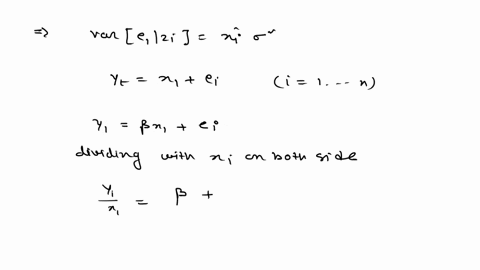 ⇒ var [e₁|zᵢ] = xᵢ² σ²
yₜ = x₁ + eᵢ (i = 1. ... n)
y₁ = βx₁ + eᵢ
dividing with xᵢ on both side
y₁/x₁ = β +